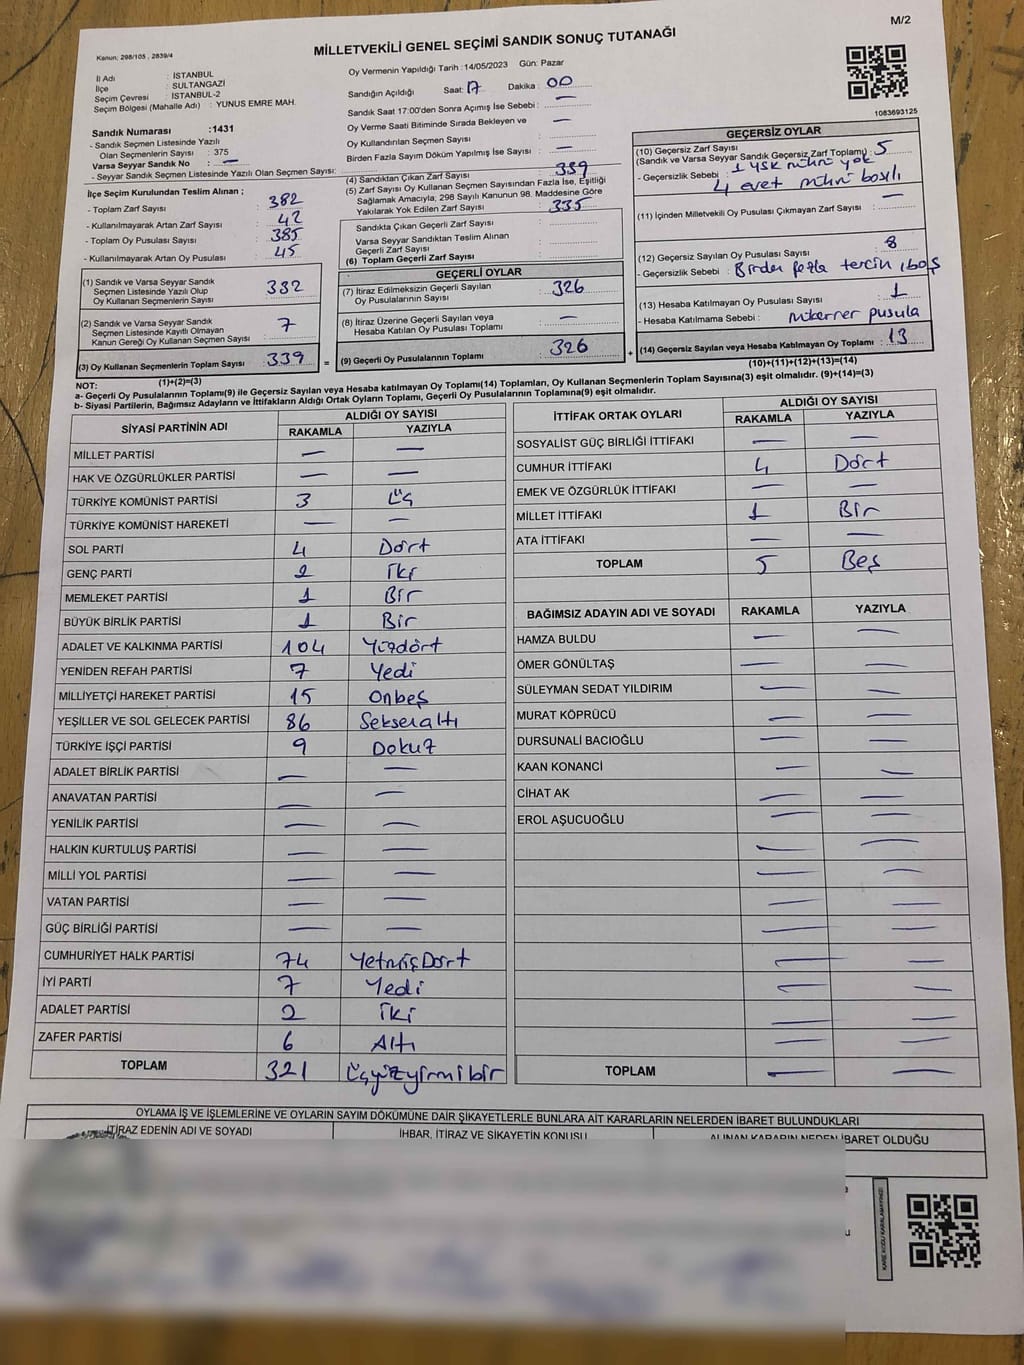 M/2
Kanun: 298/105 , 2839/4
MİLLETVEKİLİ GENEL SEÇİMİ SANDIK SONUÇ TUTANAĞI
İl Adı : İSTANBUL
İlçe : SULTANGAZİ
Seçim Çevresi : İSTANBUL-2
Seçim Bölgesi (Mahalle Adı) : YUNUS EMRE MAH.
Sandık Numarası :1431
- Sandık Seçmen Listesinde Yazılı
Olan Seçmenlerin Sayısı : 375
Varsa Seyyar Sandık No : —
- Seyyar Sandık Seçmen Listesinde Yazılı Olan Seçmen Sayısı:
Oy Vermenin Yapıldığı Tarih :14/05/2023 Gün: Pazar
Sandığın Açıldığı Saat: 17 Dakika : 00
Sandık Saat 17:00'den Sonra Açımış İse Sebebi : —
Oy Verme Saati Bitiminde Sırada Bekleyen ve
Oy Kullandırılan Seçmen Sayısı : —
Birden Fazla Sayım Döküm Yapılmış İse Sayısı : —
1083693125
İlçe Seçim Kurulundan Teslim Alınan ;
- Toplam Zarf Sayısı : 382
- Kullanılmayarak Artan Zarf Sayısı : 42
- Toplam Oy Pusulası Sayısı : 385
- Kullanılmayarak Artan Oy Pusulası : 45
(1) Sandık ve Varsa Seyyar Sandık
Seçmen Listesinde Yazılı Olup
Oy Kullanan Seçmenlerin Sayısı 332
(2) Sandık ve Varsa Seyyar Sandık
Seçmen Listesinde Kayıtlı Olmayan
Kanun Gereği Oy Kullanan Seçmen Sayısı 7
(3) Oy Kullanan Seçmenlerin Toplam Sayısı : 339
(1)+(2)=(3)
(4) Sandıktan Çıkan Zarf Sayısı : 339
(5) Zarf Sayısı Oy Kullanan Seçmen Sayısından Fazla İse, Eşitliği
Sağlamak Amacıyla; 298 Sayılı Kanunun 98. Maddesine Göre
Yakılarak Yok Edilen Zarf Sayısı : 335
Sandıkta Çıkan Geçerli Zarf Sayısı :
Varsa Seyyar Sandıktan Teslim Alınan
Geçerli Zarf Sayısı :
(6) Toplam Geçerli Zarf Sayısı :
GEÇERLİ OYLAR
(7) İtiraz Edilmeksizin Geçerli Sayılan
Oy Pusulalarının Sayısı : 326
(8) İtiraz Üzerine Geçerli Sayılan veya
Hesaba Katılan Oy Pusulası Toplamı : —
(9) Geçerli Oy Pusulalarının Toplamı : 326
GEÇERSİZ OYLAR
(10) Geçersiz Zarf Sayısı
(Sandık ve Varsa Seyyar Sandık Geçersiz Zarf Toplamı) : 5
- Geçersizlik Sebebi : 1 YSK mührü yok
4 evet mührü basılı
(11) İçinden Milletvekili Oy Pusulası Çıkmayan Zarf Sayısı : —
(12) Geçersiz Sayılan Oy Pusulası Sayısı : 8
- Geçersizlik Sebebi : Birden fazla tercih, boş
(13) Hesaba Katılmayan Oy Pusulası Sayısı : 1
- Hesaba Katılmama Sebebi : mükerrer pusula
(14) Geçersiz Sayılan veya Hesaba Katılmayan Oy Toplamı : 13
(10)+(11)+(12)+(13)=(14)
NOT:
a- Geçerli Oy Pusulalarının Toplamı(9) ile Geçersiz Sayılan veya Hesaba katılmayan Oy Toplamı(14) Toplamları, Oy Kullanan Seçmenlerin Toplam Sayısına(3) eşit olmalıdır. (9)+(14)=(3)
b- Siyasi Partilerin, Bağımsız Adayların ve İttifakların Aldığı Ortak Oyların Toplamı, Geçerli Oy Pusulalarının Toplamına(9) eşit olmalıdır.
SİYASİ PARTİNİN ADI ALDIĞI OY SAYISI
RAKAMLA YAZIYLA
MİLLET PARTİSİ — —
HAK VE ÖZGÜRLÜKLER PARTİSİ — —
TÜRKİYE KOMÜNİST PARTİSİ 3 Üç
TÜRKİYE KOMÜNİST HAREKETİ — —
SOL PARTİ 4 Dört
GENÇ PARTİ 2 İki
MEMLEKET PARTİSİ 1 Bir
BÜYÜK BİRLİK PARTİSİ 1 Bir
ADALET VE KALKINMA PARTİSİ 104 Yüzdört
YENİDEN REFAH PARTİSİ 7 Yedi
MİLLİYETÇİ HAREKET PARTİSİ 15 Onbeş
YEŞİLLER VE SOL GELECEK PARTİSİ 86 Seksenaltı
TÜRKİYE İŞÇİ PARTİSİ 9 Dokuz
ADALET BİRLİK PARTİSİ — —
ANAVATAN PARTİSİ — —
YENİLİK PARTİSİ — —
HALKIN KURTULUŞ PARTİSİ — —
MİLLİ YOL PARTİSİ — —
VATAN PARTİSİ — —
GÜÇ BİRLİĞİ PARTİSİ — —
CUMHURİYET HALK PARTİSİ 74 YetmişDört
İYİ PARTİ 7 Yedi
ADALET PARTİSİ 2 İki
ZAFER PARTİSİ 6 Altı
TOPLAM 321 Üçyüzyirmibir
İTTİFAK ORTAK OYLARI ALDIĞI OY SAYISI
RAKAMLA YAZIYLA
SOSYALİST GÜÇ BİRLİĞİ İTTİFAKI — —
CUMHUR İTTİFAKI 4 Dört
EMEK VE ÖZGÜRLÜK İTTİFAKI — —
MİLLET İTTİFAKI 1 Bir
ATA İTTİFAKI — —
TOPLAM 5 Beş
BAĞIMSIZ ADAYIN ADI VE SOYADI RAKAMLA YAZIYLA
HAMZA BULDU — —
ÖMER GÖNÜLTAŞ — —
SÜLEYMAN SEDAT YILDIRIM — —
MURAT KÖPRÜCÜ — —
DURSUNALİ BACIOĞLU — —
KAAN KONANCİ — —
CİHAT AK — —
EROL AŞUCUOĞLU — —
TOPLAM — —
OYLAMA İŞ VE İŞLEMLERİNE VE OYLARIN SAYIM DÖKÜMÜNE DAİR ŞİKAYETLERLE BUNLARA AİT KARARLARIN NELERDEN İBARET BULUNDUKLARI
İTİRAZ EDENİN ADI VE SOYADI İHBAR, İTİRAZ VE ŞİKAYETİN KONUSU ALINAN KARARIN NEDEN İBARET OLDUĞU